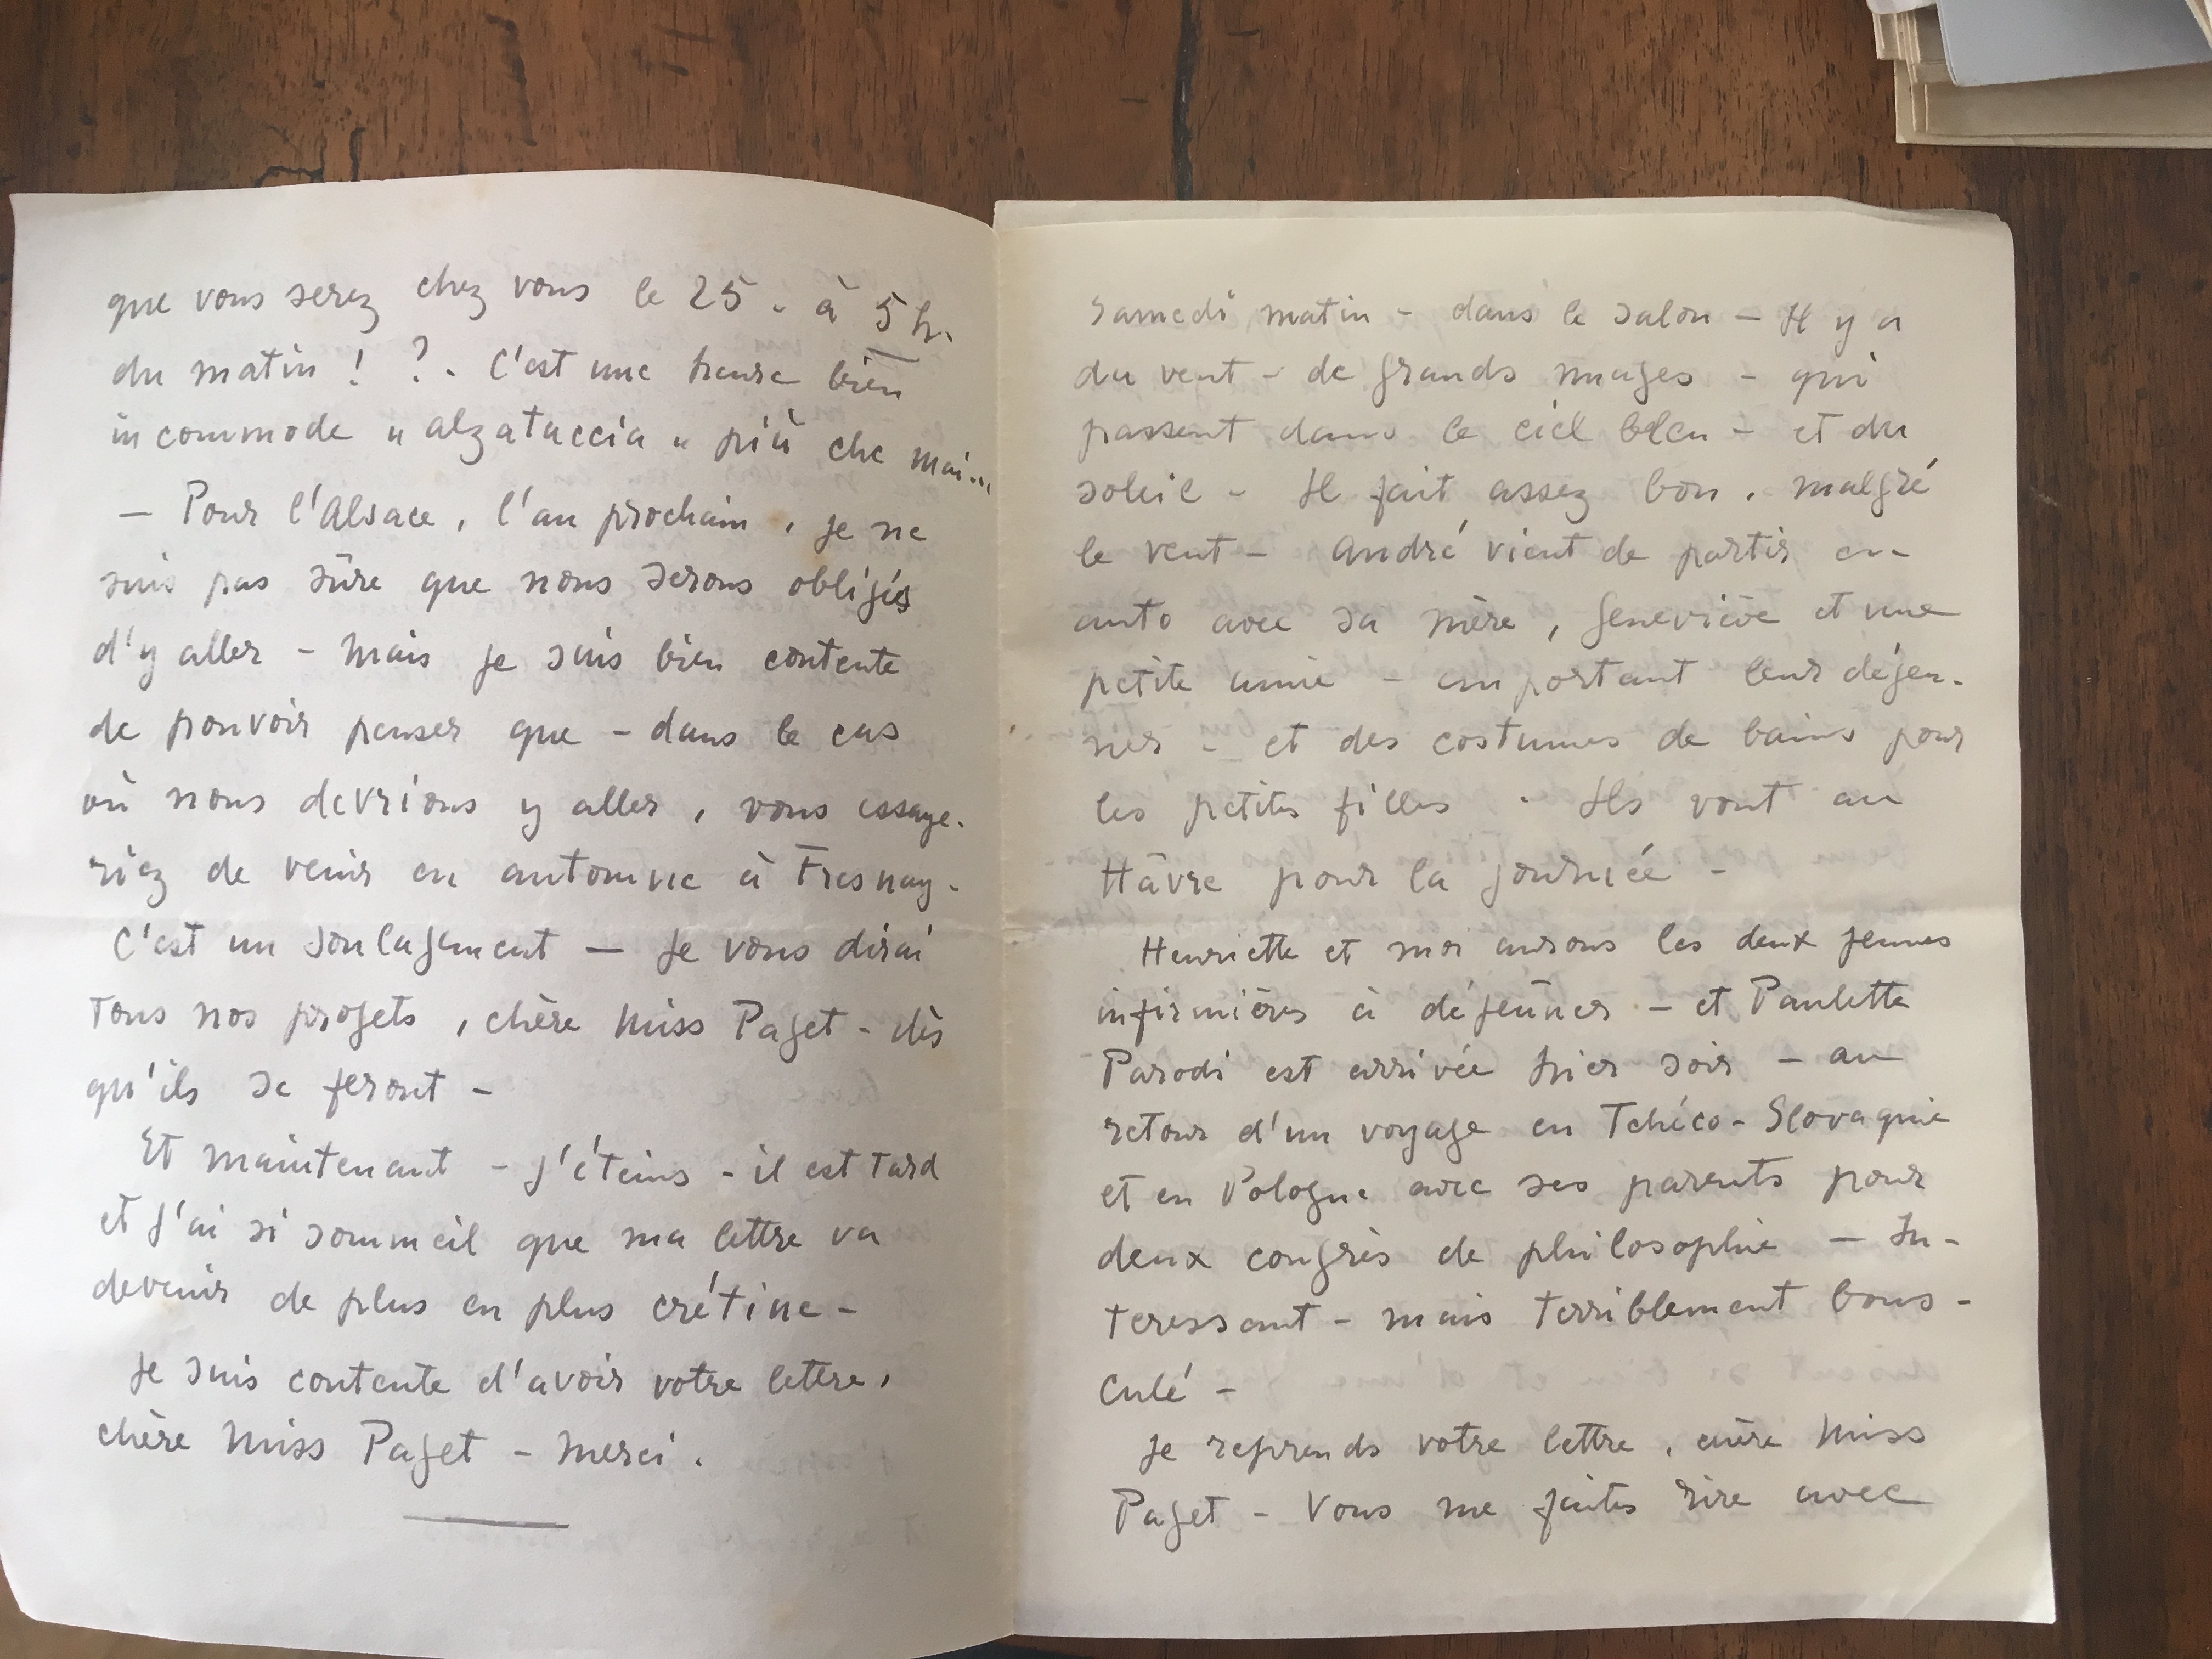 que vous serez chez vous le 25 - à 5 h.
du matin ! ? - C'est une heure bien
incommode " alzataccia " più che mai...
— Pour l'Alsace, l'an prochain, je ne
suis pas sûre que nous serons obligés
d'y aller - Mais je suis bien contente
de pouvoir penser que - dans le cas
où nous devrions y aller, vous essaye-
riez de venir en automne à Fresnay -
C'est un soulagement — Je vous dirai
Tous nos projets, chère Miss Paget - dès
qu'ils se feront -
Et maintenant - j'éteins - il est Tard
et j'ai si sommeil que ma lettre va
devenir de plus en plus crétine -
Je suis contente d'avoir votre lettre,
chère Miss Paget - Merci.
Samedi matin - dans le salon — Il y a
du vent - de grands nuages - qui
passent dans le ciel bleu - et du
soleil - Il fait assez bon, malgré
le vent - André vient de partir en
auto avec sa mère, Geneviève et une
petite amie - emportant leur déjeu-
ner - et des costumes de bains pour
les petites filles - Ils vont au
Hâvre pour la journée -
Henriette et moi aurons les deux jeunes
infirmières à déjeûner - et Paulette
Parodi est arrivée hier soir - au
retour d'un voyage en Tchéco-Slovaquie
et en Pologne avec ses parents pour
deux congrès de philosophie — In-
teressant - mais terriblement bous-
culé -
Je reprends votre lettre, chère Miss
Paget - Vous me faites rire avec